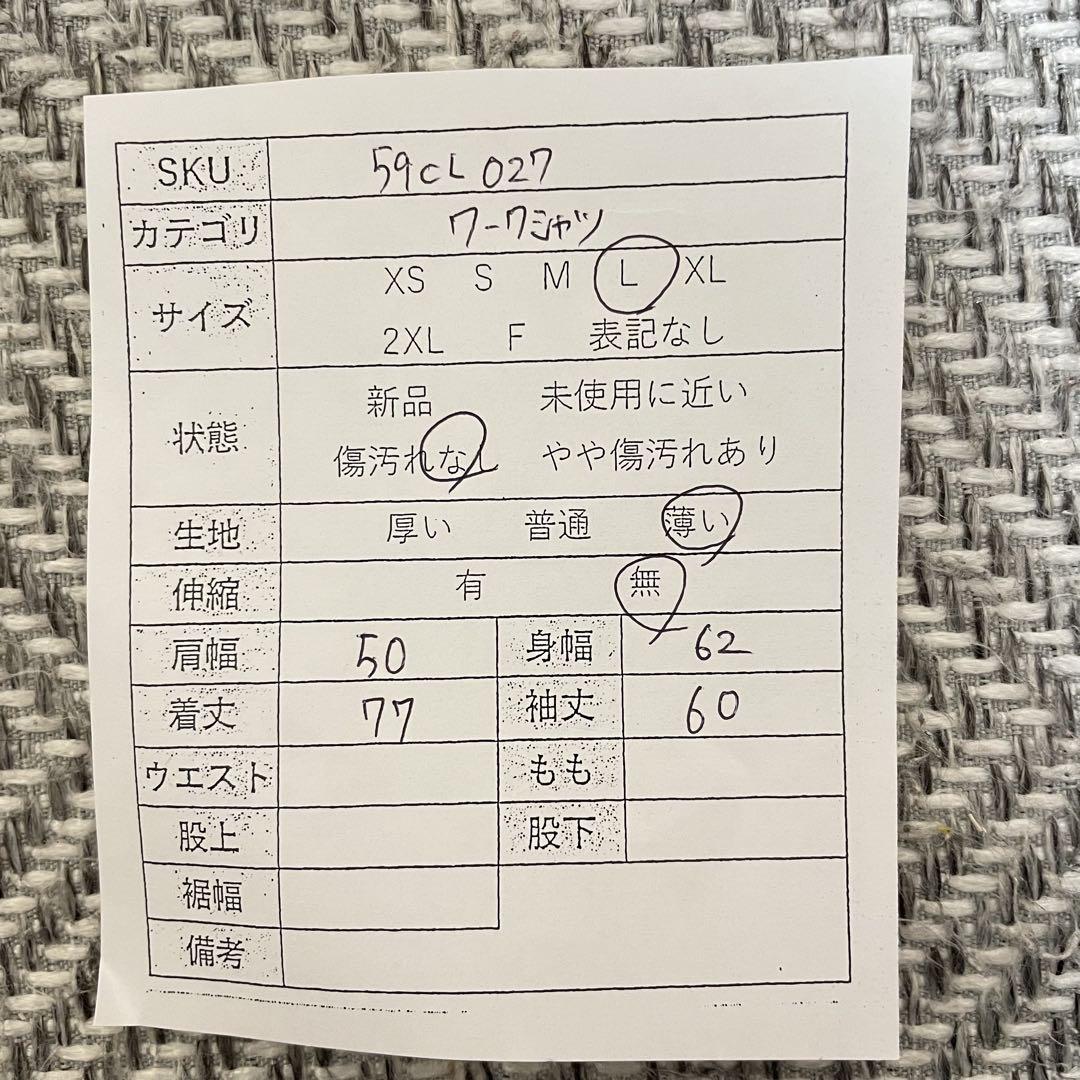 SKU 59CL027
カテゴリ ワークシャツ
サイズ XS S M L XL
2XL F 表記なし
状態 新品 未使用に近い
傷汚れなし やや傷汚れあり
生地 厚い 普通 薄い
伸縮 有 無
肩幅 50 身幅 62
着丈 77 袖丈 60
ウエスト もも
股上 股下
裾幅
備考